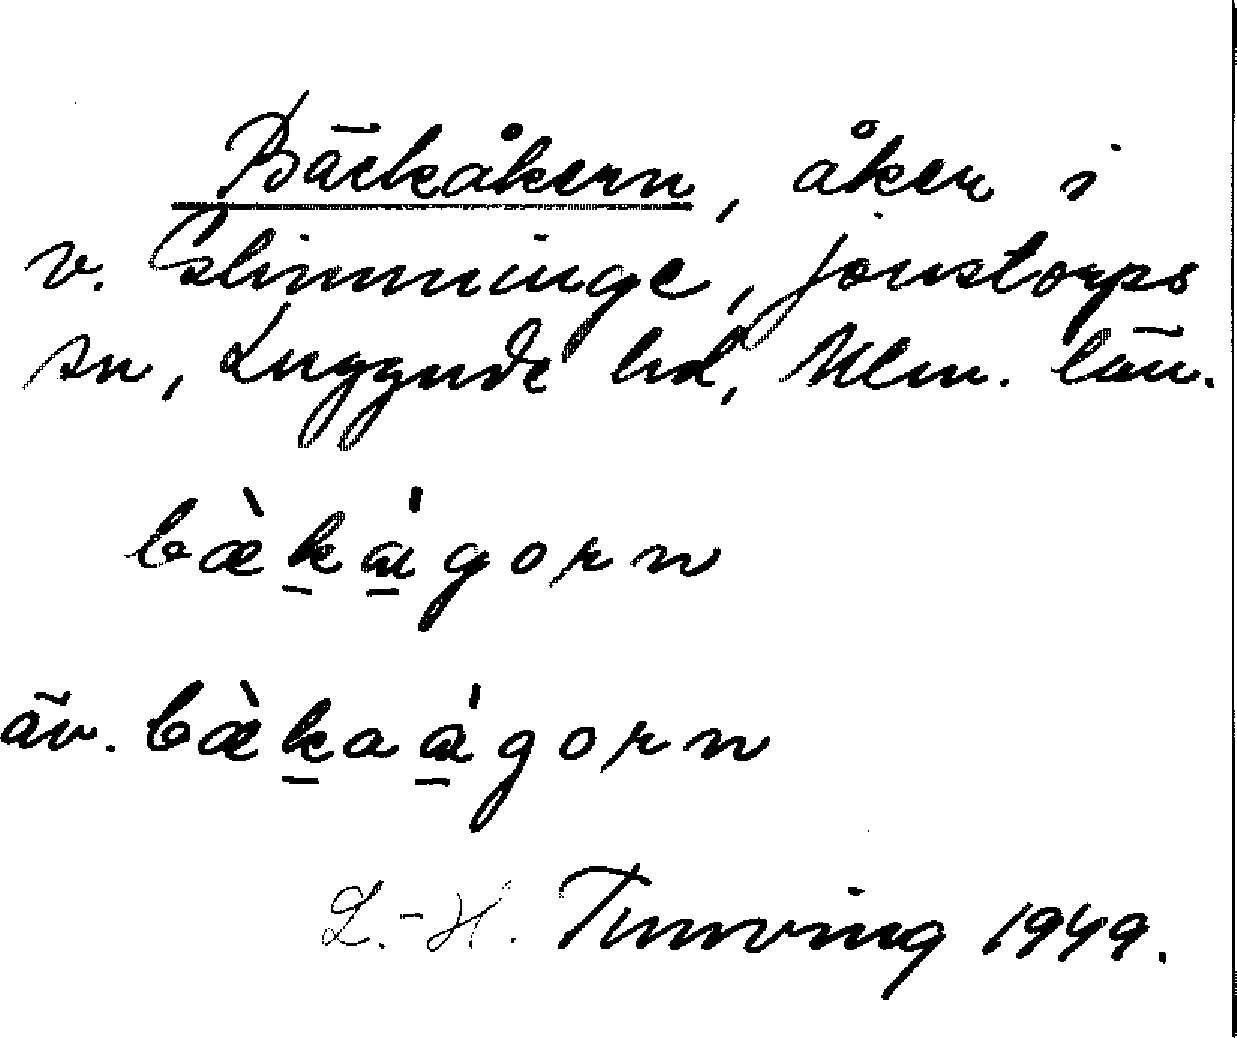 Bäckåkern, åker i
v. Glimminge, Jonstorps
sn, Luggude hd, Mlm. län.
bæ̀ká̱gorn
äv. bæ̀kaá̱gorn
L.-H. Tunving 1949.